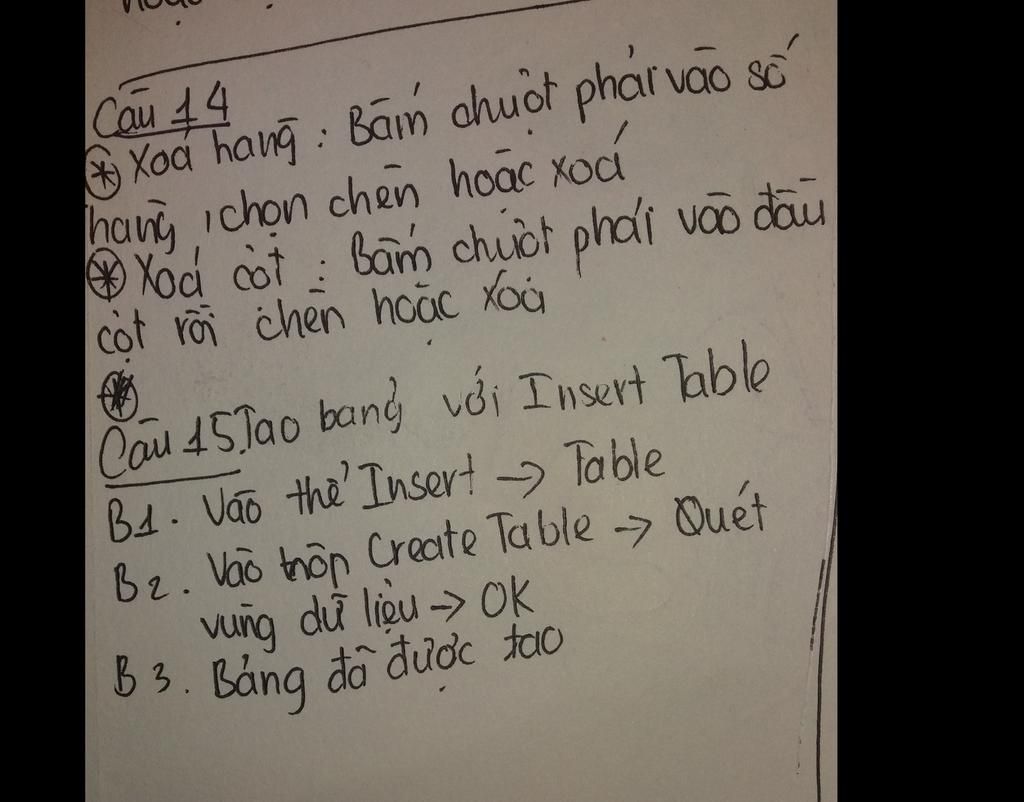 Câu 14
* Xoá hàng : Bấm chuột phải vào số
hàng, chọn chèn hoặc xoá
* Xoá cột : Bấm chuột phải vào đầu
cột rồi chèn hoặc xoá
*
Câu 15. Tạo bảng với Insert Table
B1. Vào thẻ Insert → Table
B2. Vào hộp Create Table → Quét
vùng dữ liệu → OK
B3. Bảng đã được tạo